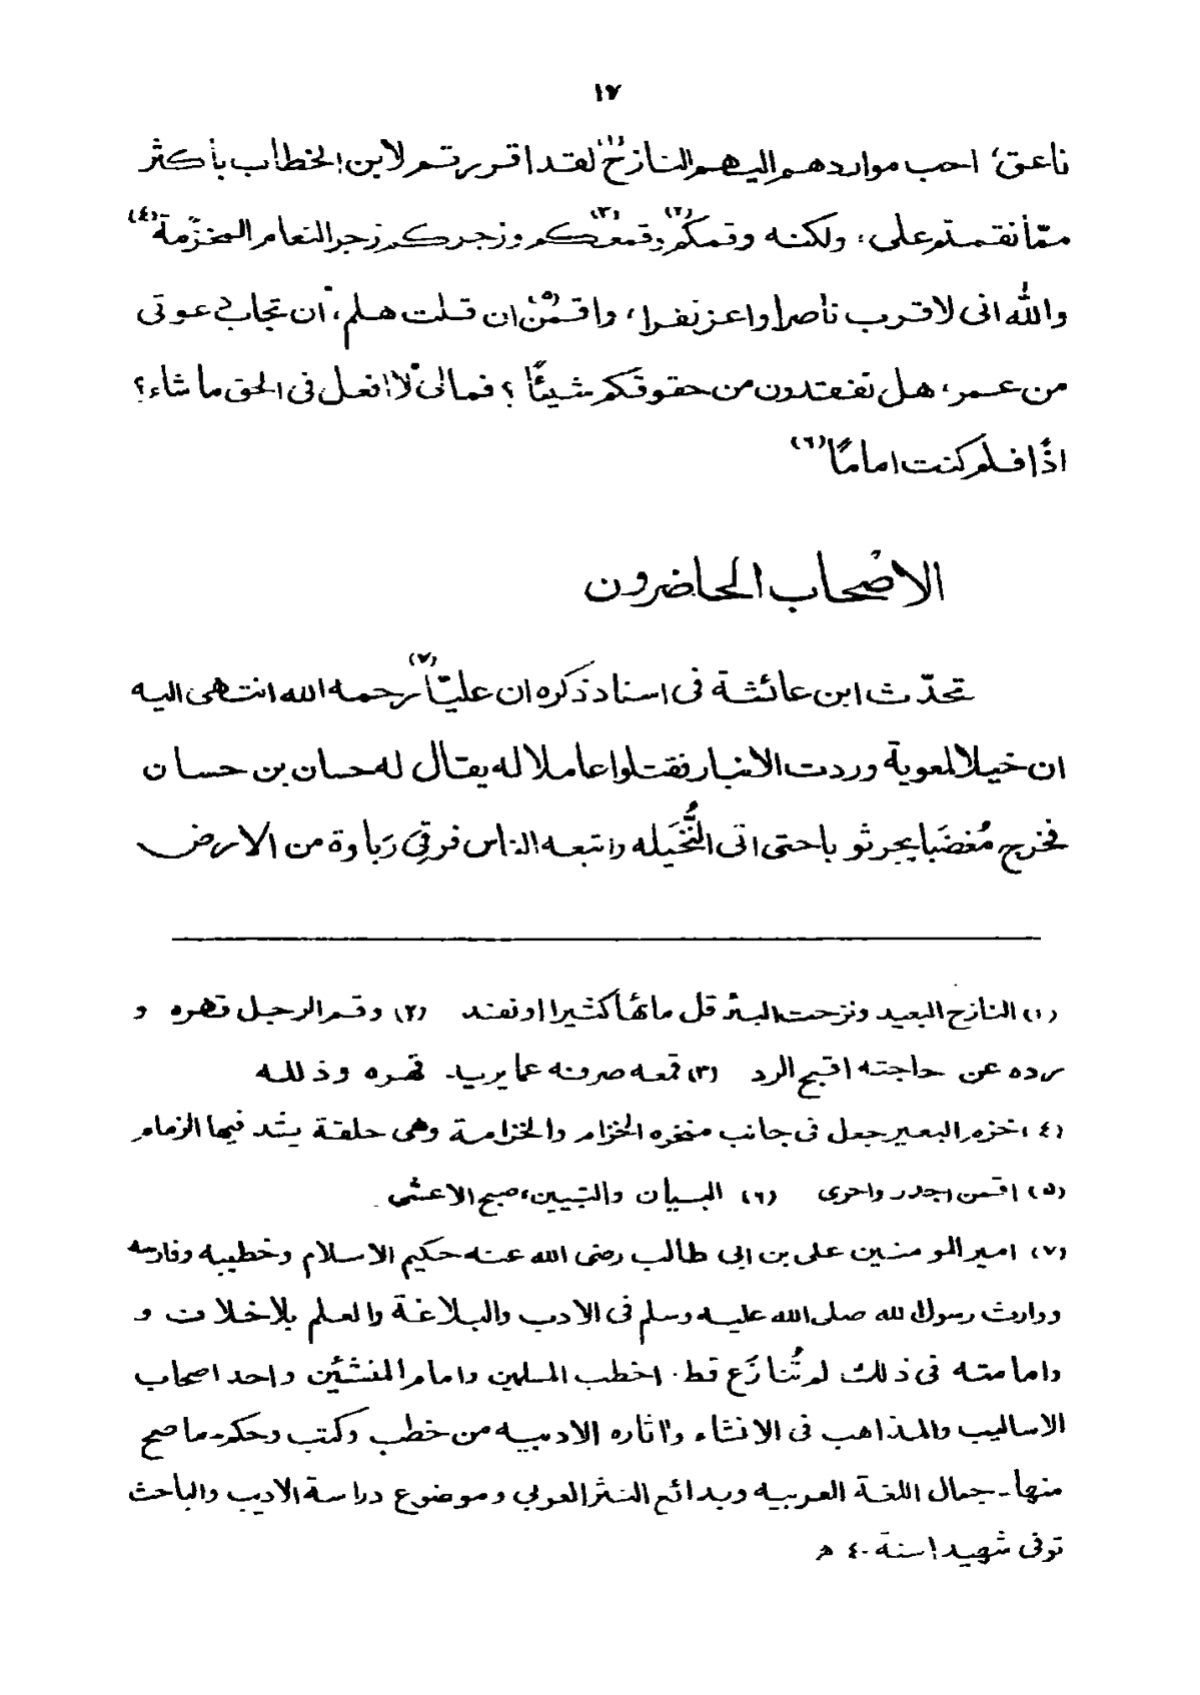 ١٧
ناعق، احب مواردهم اليهم النازح(١) لقد اقررتم لابن الخطاب بأكثر
ممّا نقمتم على، ولكنه وقمكم(٢) وقمعكم(٣) وزجركم زجر النعام المخزّمة(٤)
والله انى لاقرب ناصرا واعز نفرا، واقمن(٥) ان قلت هلم، أن تجاب دعوتى
من عمر، هل تفقدون من حقوقكم شيئًا؟ فمالى لا افعل فى الحق ما شاء؟
اذًا فلم كنت امامًا(٦)
الأصحاب الحاضرون
تحدّث ابن عائشة فى اسناد ذكره ان عليّا(٧) رحمه الله انتهى اليه
ان خيلا لمعوية وردت الانبار فقتلوا عاملا له يقال له حسان بن حسان
فخرج مُغضَبا يجر ثوبا حتى اتى النُّخَيله واتبعه الناس فرقِىَ رَباوة من الارض
(١) النازح البعيد ونزحت البئر قل مائها كثيرا او نفند (٢) وقم الرجل قهره و
رده عن حاجته اقبح الرد (٣) قمعه صرفه عما يريد. قهره وذلله
(٤) خزم البعير جعل فى جانب منخره الخزام والخزامة وهى حلقة يشد فيها الزمام
(٥) اقمن اجدر واحرى (٦) البيان والتبيين، صبح الاعشى.
(٧) امير المومنين على بن ابى طالب رضى الله عنه حكيم الاسلام وخطيبه وفارسه
ووارث رسول لله صلى الله عليه وسلم فى الادب والبلاغة والعلم بلاخلاف و
وامامته فى ذلك لم تُنازَع قط. اخطب المسلمين وامام المنشئين واحد اصحاب
الاساليب والمذاهب فى الانشاء واثاره الادبيه من خطب وكتب وحكم۔ ما صح
منها۔ جمال اللغة العربيه وبدائع النثر العربى وموضوع دراسة الاديب والباحث
توفى شهيدا سنة ٤٠ ه